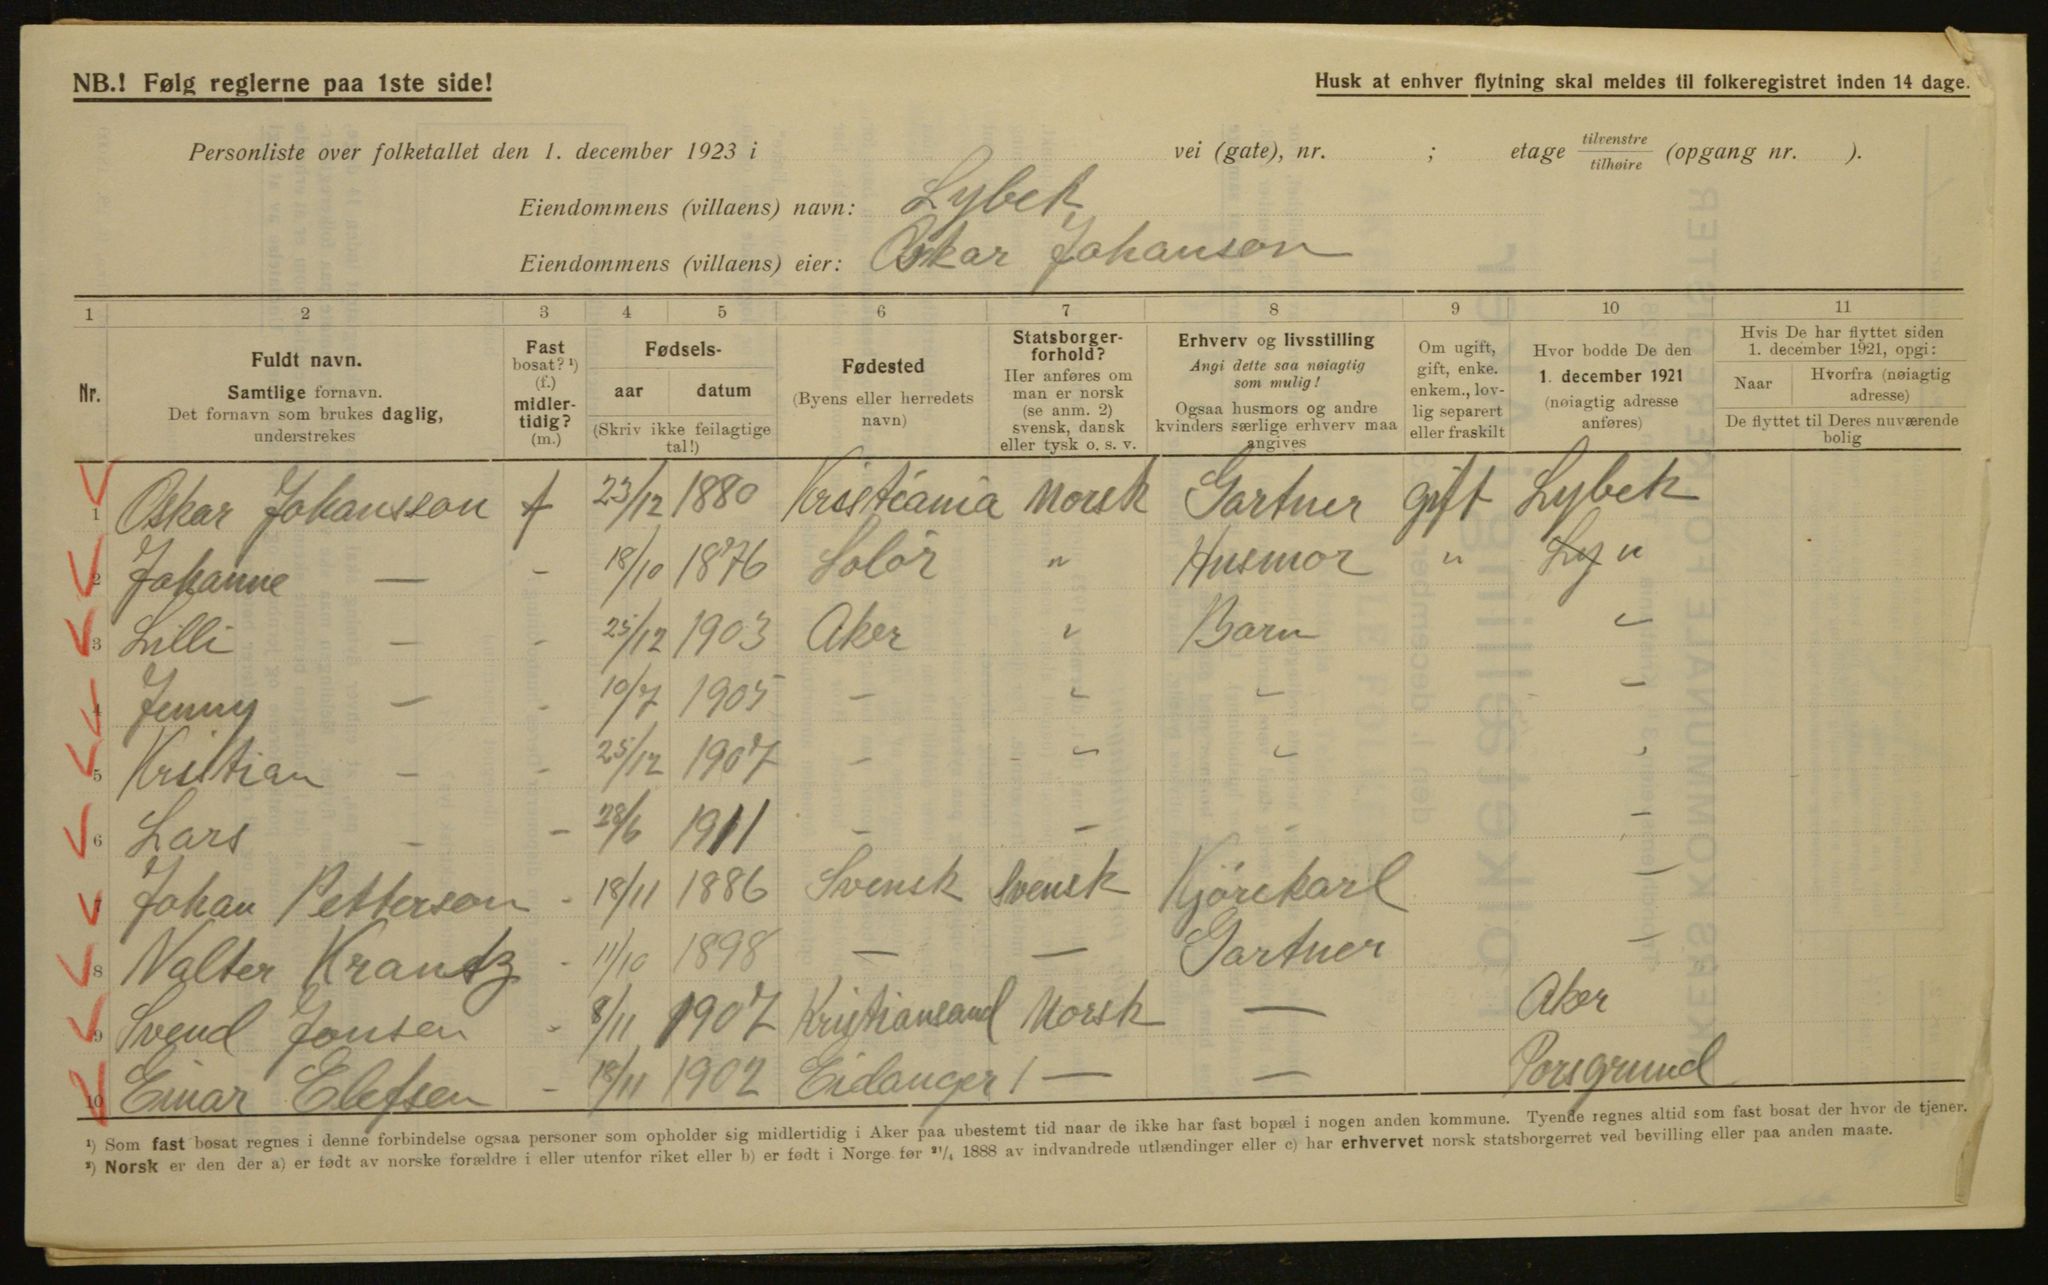 NB.! Følg reglerne paa 1ste side!
Husk at enhver flytning skal meldes til folkeregistret inden 14 dage.
Personliste over folketallet den 1. december 1923 i vei (gate), nr. ; etage tilvenstre/tilhøire (opgang nr. ).
Eiendommens (villaens) navn: Lybek
Eiendommens (villaens) eier: Oskar Johanson
1 2 3 4 5 6 7 8 9 10 11
Nr.
Fuldt navn.
Samtlige fornavn.
Det fornavn som brukes daglig,
understrekes
Fast
bosat? ¹)
(f.)
midler-
tidig?
(m.)
Fødsels-
aar datum
(Skriv ikke feilagtige
tal!)
Fødested
(Byens eller herredets
navn)
Statsborger-
forhold?
Her anføres om
man er norsk
(se anm. 2)
svensk, dansk
eller tysk o. s. v.
Erhverv og livsstilling
Angi dette saa nøiagtig
som mulig!
Ogsaa husmors og andre
kvinders særlige erhverv maa
angives
Om ugift,
gift, enke.
enkem., lov-
lig separert
eller fraskilt
Hvor bodde De den
1. december 1921
(nøiagtig adresse
anføres)
Hvis De har flyttet siden
1. december 1921, opgi:
Naar Hvorfra (nøiagtig
adresse)
De flyttet til Deres nuværende
bolig
1 Oskar Johansson f 23/12 1880 Kristiania Norsk Gartner gift Lybek
2 Johanne — - 18/10 1876 Solør " Husmor " Ly "
3 Lilli - - 25/12 1903 Aker " Barn "
4 Jenny - - 10/7 1905 - " - -
5 Kristian - - 25/12 1907 - " " "
6 Lars - - 28/6 1911 - - - -
7 Johan Petterson - 18/11 1886 Svensk Svensk Kjörekarl -
8 Valter Krantz - 11/10 1898 — — Gartner -
9 Svend Jonsen - 8/11 1907 Kristiansand Norsk — Aker
10 Einar Elefsen - 18/11 1902 Eidanger — — Porsgrund
¹) Som fast bosat regnes i denne forbindelse ogsaa personer som opholder sig midlertidig i Aker paa ubestemt tid naar de ikke har fast bopæl i nogen anden kommune. Tyende regnes altid som fast bosat der hvor de tjener.
²) Norsk er den der a) er født av norske forældre i eller utenfor riket eller b) er født i Norge før ²¹/₄ 1888 av indvandrede utlændinger eller c) har erhvervet norsk statsborgerret ved bevilling eller paa anden maate.